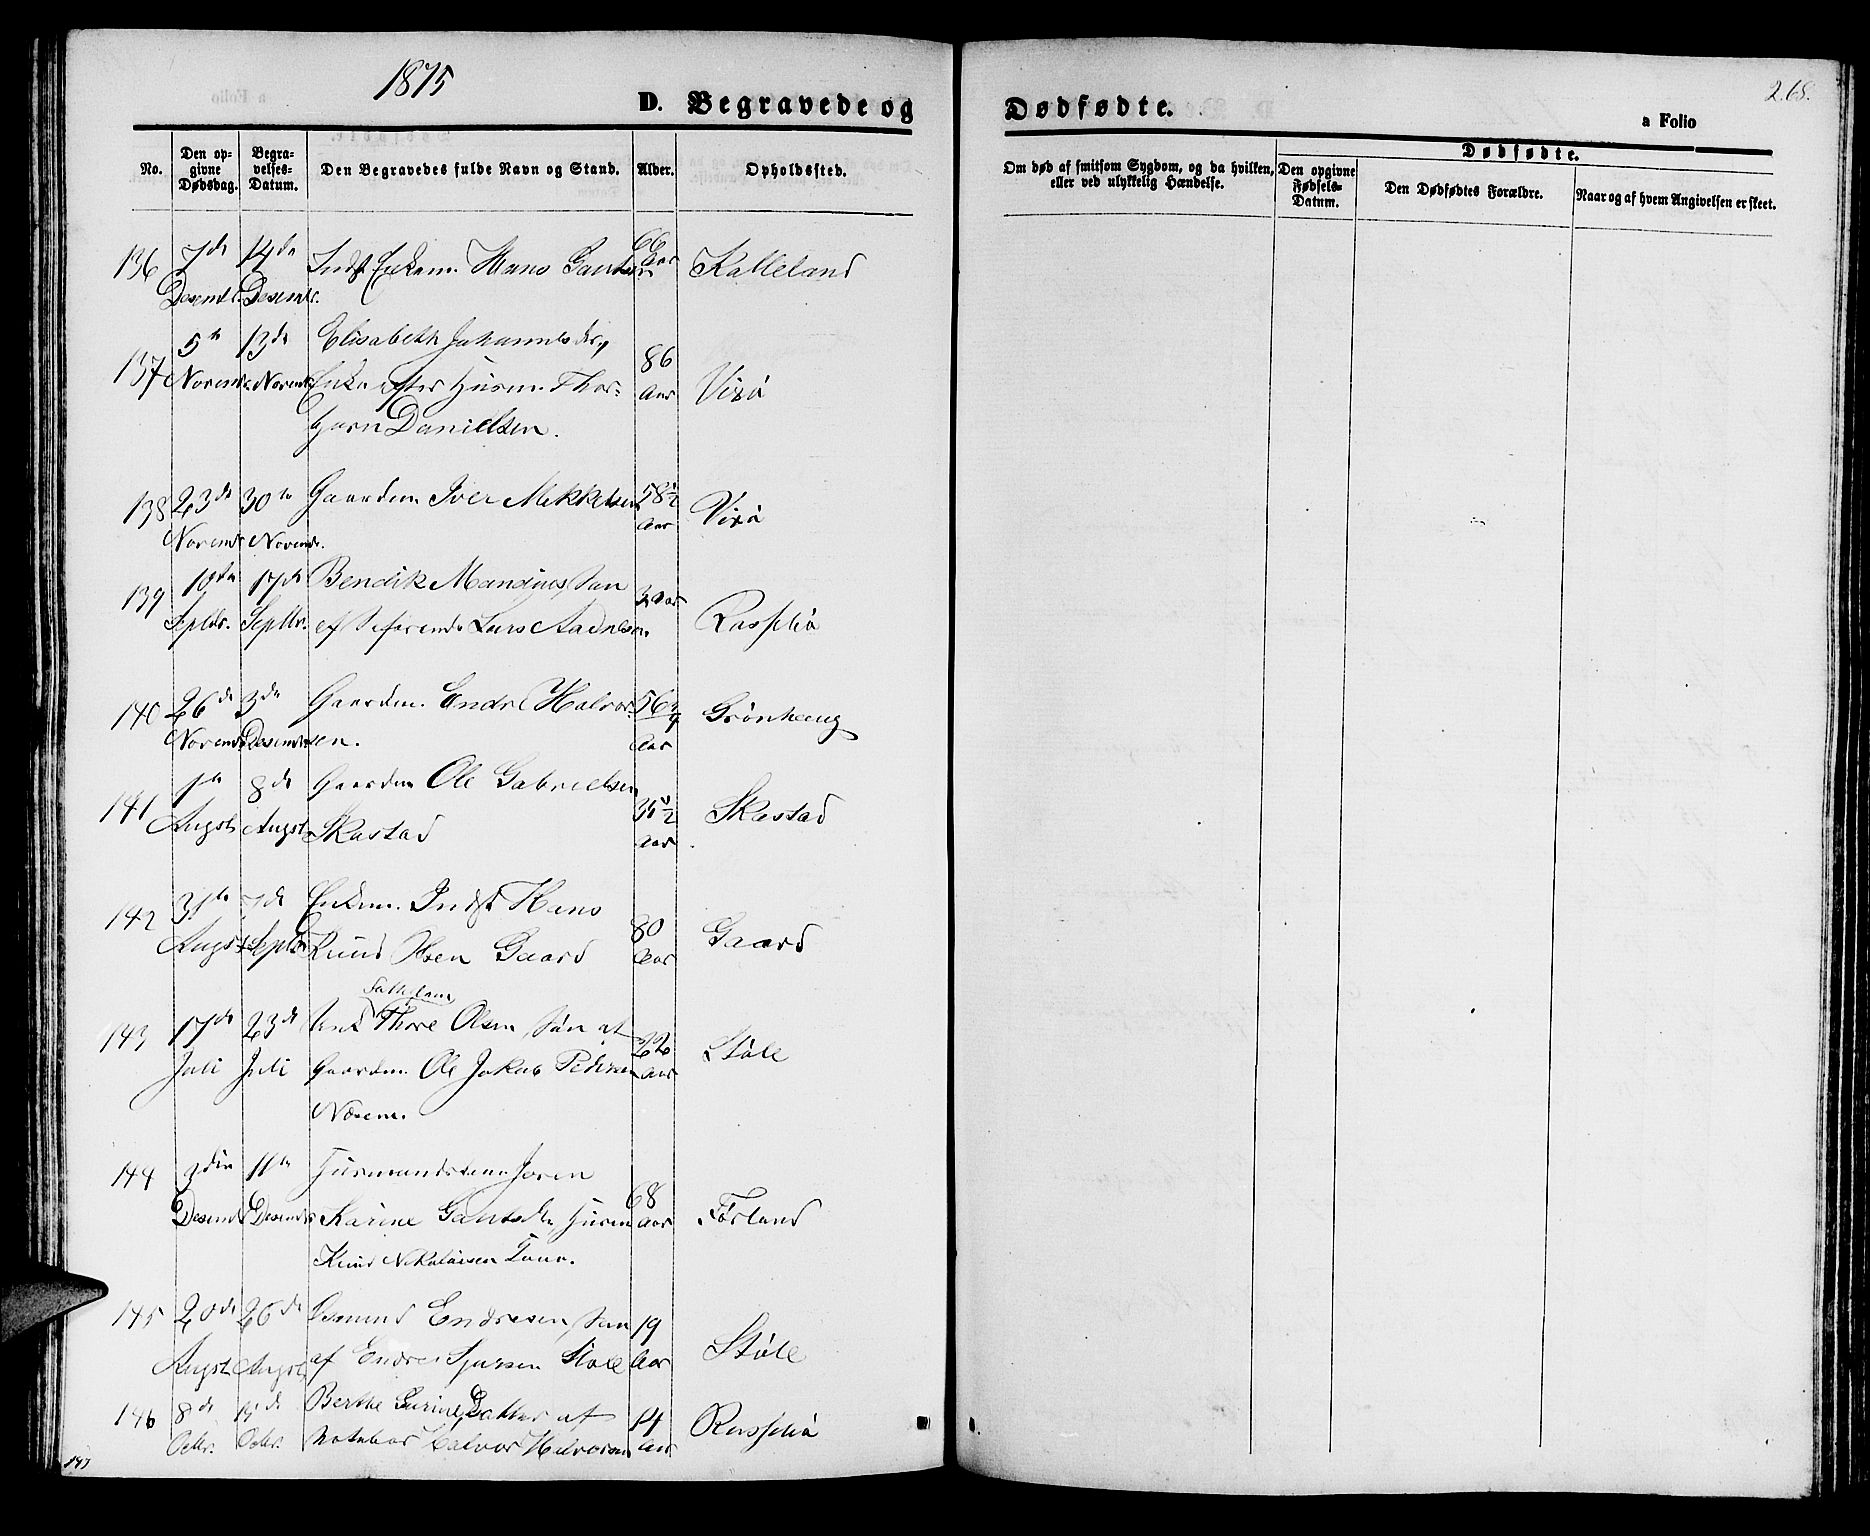 1875
268.
D. Begravede og Dødfødte.
a Folio
No.
Den opgivne Dødsdag.
Begravelses-Datum.
Den Begravedes fulde Navn og Stand.
Alder.
Opholdssted.
Om død af smitsom Sygdom, og da hvilken, eller ved ulykkelig Hændelse.
Dødfødte.
Den opgivne Fødsels-Datum.
Den Dødfødtes Forældre.
Naar og af hvem Angivelsen er skeet.
136 7de 14de Indst Enkem. Hans 66 Aar Kalleland
Desembr. Desembr.
5te 13de Elisabeth Johannesdr, 86
137 Novembr. Novembr. Enke efter Husm. Thor- Aar Virå
bjørn Danielsen.
138 23de 30te Gaardm. Iver Mikkelsen 58½ Virå
Novembr. Novembr. Aar
139 10de 17de Bendik Mandius, Søn Aar
Septbr. Septbr. af Lars Aadnesen.
140 26de 3de Gaardm. Endre Halvor- 56 Grønhaug
Novembr. Desembr. sen. Aar
1ste 8de Gaardm Ole Gabrielsen
141 Augst Augst Skastad Aar Skastad
142 31te 7de Enkem. Indst Hans 80
Augst Septbr Knud Olsen Gaard Aar Gaard
143 17de 23de Thore Olsen, Søn af 22 Støle
Juli Juli Gaardm. Ole Jakob Pedersen Aar
144 11te Husmandskone Joren 68
Desembr Desembr Karine Husm Aar Førland
Knud Nikolaisen
145 20de 26de Osmund Endresen, Søn 19 Støle
Augst Augst af Endre Sjursen Støle Aar
146 8de Berthe Serine, Datter af 14
Octbr. Octbr. Halvor Halvorsen Aar
147